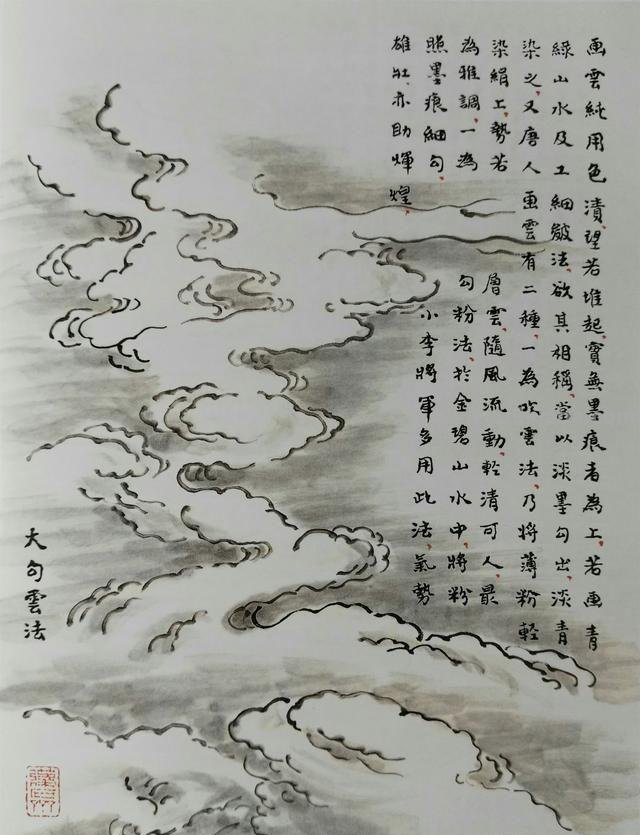 畫雲純用色漬望若堆起實無墨痕者為上若畫青
綠山水及工細皴法欲其相稱當以淡墨勾出淡青
染之又唐人畫雲有二種一為吹雲法乃將薄粉輕
染絹上勢若層雲隨風流動輕清可人最
為雅調一為勾粉法於金碧山水中將粉
照墨痕細勾小李將軍多用此法氣勢
雄壯亦助煇煌
大勾雲法